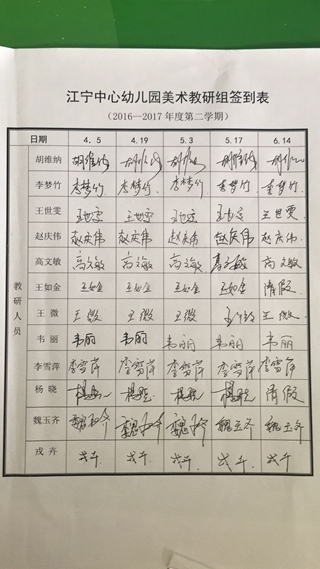 江宁中心幼儿园美术教研组签到表
(2016—2017年度第二学期)
日期 4.5 4.19 5.3 5.17 6.14
教研人员
胡维纳 胡维纳 胡维纳 胡维纳 胡维纳 胡维纳
李梦竹 李梦竹 李梦竹 李梦竹 李梦竹 李梦竹
王世雯 王世雯 王世雯 王世雯 王世雯 王世雯
赵庆伟 赵庆伟 赵庆伟 赵庆伟 赵庆伟 赵庆伟
高文敏 高文敏 高文敏 高文敏 高文敏 高文敏
王如金 王如金 王如金 王如金 王如金 请假
王微 王微 王微 王微 王微
韦丽 韦丽 韦丽 韦丽 韦丽 韦丽
李雪萍 李雪萍 李雪萍 李雪萍 李雪萍 李雪萍
杨晓 杨晓 杨晓 杨晓 杨晓 请假
魏玉齐 魏玉齐 魏玉齐 魏玉齐 魏玉齐 魏玉齐
戎卉 戎卉 戎卉 戎卉 戎卉 戎卉